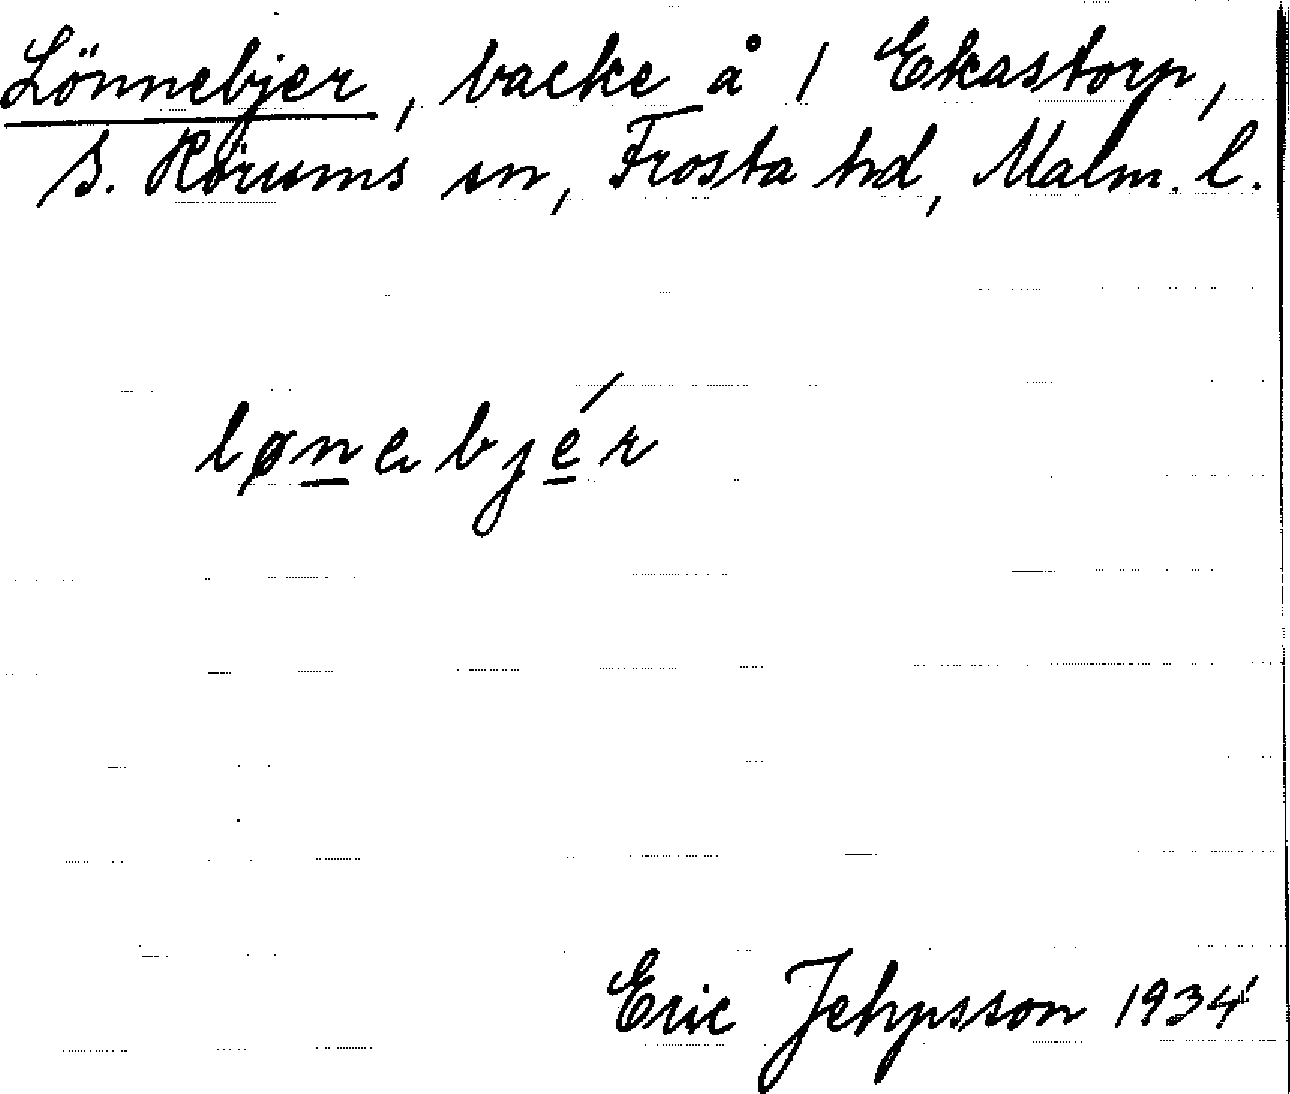 Lönnebjer, backe å 1 Ekastorp,
S. Rörums sn, Frosta hd, Malm. l.
lønebjér
Eric Jehpsson 1934